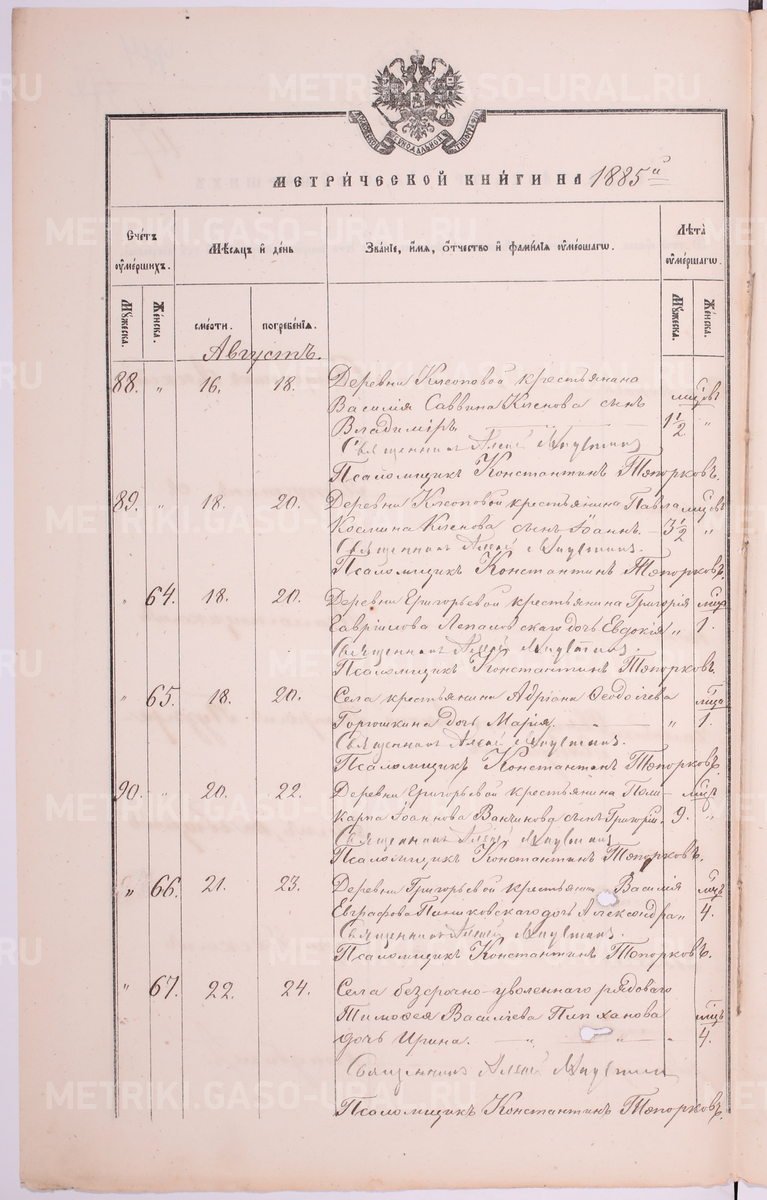 МЕТРИ́ЧЕСКОЙ КНИ́ГИ НА 1885й
Сче́тъ ᲂу҆ме́ршихъ.
Мѣ́сяцъ и҆ де́нь
Зва́нїе, и҆́мя, ѻ҆́тчество и҆ фами́лїя ᲂу҆ме́ршагѡ.
Лѣ́та ᲂу҆ме́ршагѡ.
Мꙋ́жеска.
Же́нска.
сме́рти.
погребе́нїя.
Мꙋ́жеска.
Же́нска.
Августъ.
88. " 16. 18. Деревни Клеоповой крестьянина
Василія Саввина Клюнова сынъ мцовъ
Владиміръ. 1½ "
Священникъ Алексѣй
Псаломщикъ Константинъ Топорковъ.
89. " 18. 20. Деревни Клеоповой крестьянина Павла мцовъ
Космина Клюнова сынъ Іоаннъ. — 3½ "
Священникъ Алексѣй
Псаломщикъ Константинъ Топорковъ.
" 64. 18. 20. Деревни Григорьевой крестьянина Григорія мцъ
Гавріилова дочь Евдокія " 1.
Священникъ Алексѣй
Псаломщикъ Константинъ Топорковъ.
" 65. 18. 20. Села крестьянина Адріана Ѳеодосіева мцъ
Горюшкина дочь Марія. — " — " 1.
Священникъ Алексѣй
Псаломщикъ Константинъ Топорковъ.
90. " 20. 22. Деревни Григорьевой крестьянина Поли- мцъ
карпа Іоаннова сынъ Григорій. 9. "
Священникъ Алексѣй
Псаломщикъ Константинъ Топорковъ.
" 66. 21. 23. Деревни Григорьевой крестьянина Василія мцъ
Евграфова дочь Александра " 4.
Священникъ Алексѣй
Псаломщикъ Константинъ Топорковъ.
" 67. 22. 24. Села безсрочно-уволеннаго рядоваго
Тимофея Васильева мцъ
дочь Ирина. — " — " — 4.
Священникъ Алексѣй
Псаломщикъ Константинъ Топорковъ.
METRIKI.GASO-URAL.RU